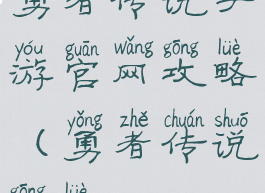 勇者传说手
yóu guān wǎng gōng lüè
游官网攻略
yǒng zhě chuán shuō
(勇者传说
gōng lüè